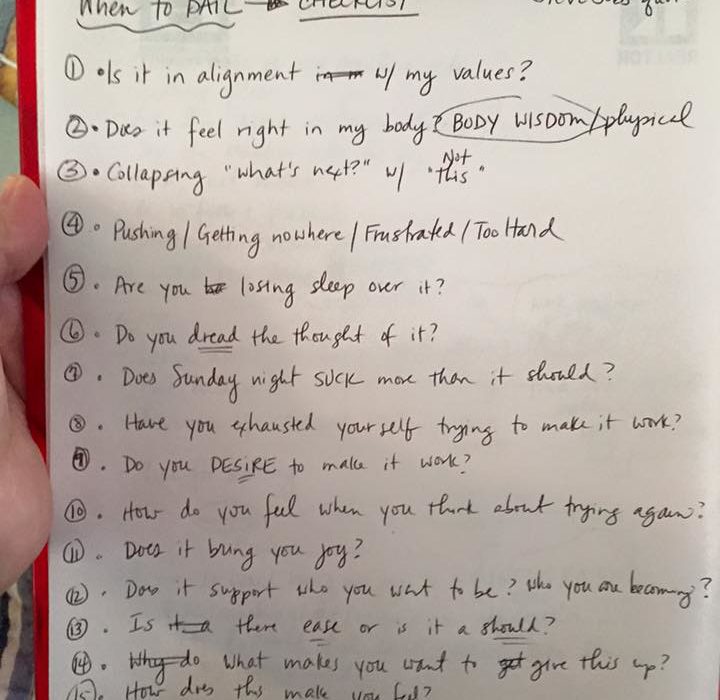 When to BAIL → CHECKLIST
① • Is it in alignment w/ my values?
②. Does it feel right in my body? BODY WISDOM/physical
③ • Collapsing "what's next?" w/ "Not this"
④ • Pushing / Getting nowhere / Frustrated / Too Hard
⑤. Are you losing sleep over it?
⑥ • Do you dread the thought of it?
⑦ • Does Sunday night SUCK more than it should?
⑧. Have you exhausted yourself trying to make it work?
⑨. Do you DESIRE to make it work?
⑩ • How do you feel when you think about trying again?
⑪. Does it bring you joy?
⑫. Does it support who you want to be? who you are becoming?
⑬. Is there ease or is it a should?
⑭. What makes you want to give this up?
⑮. How does this make you feel?